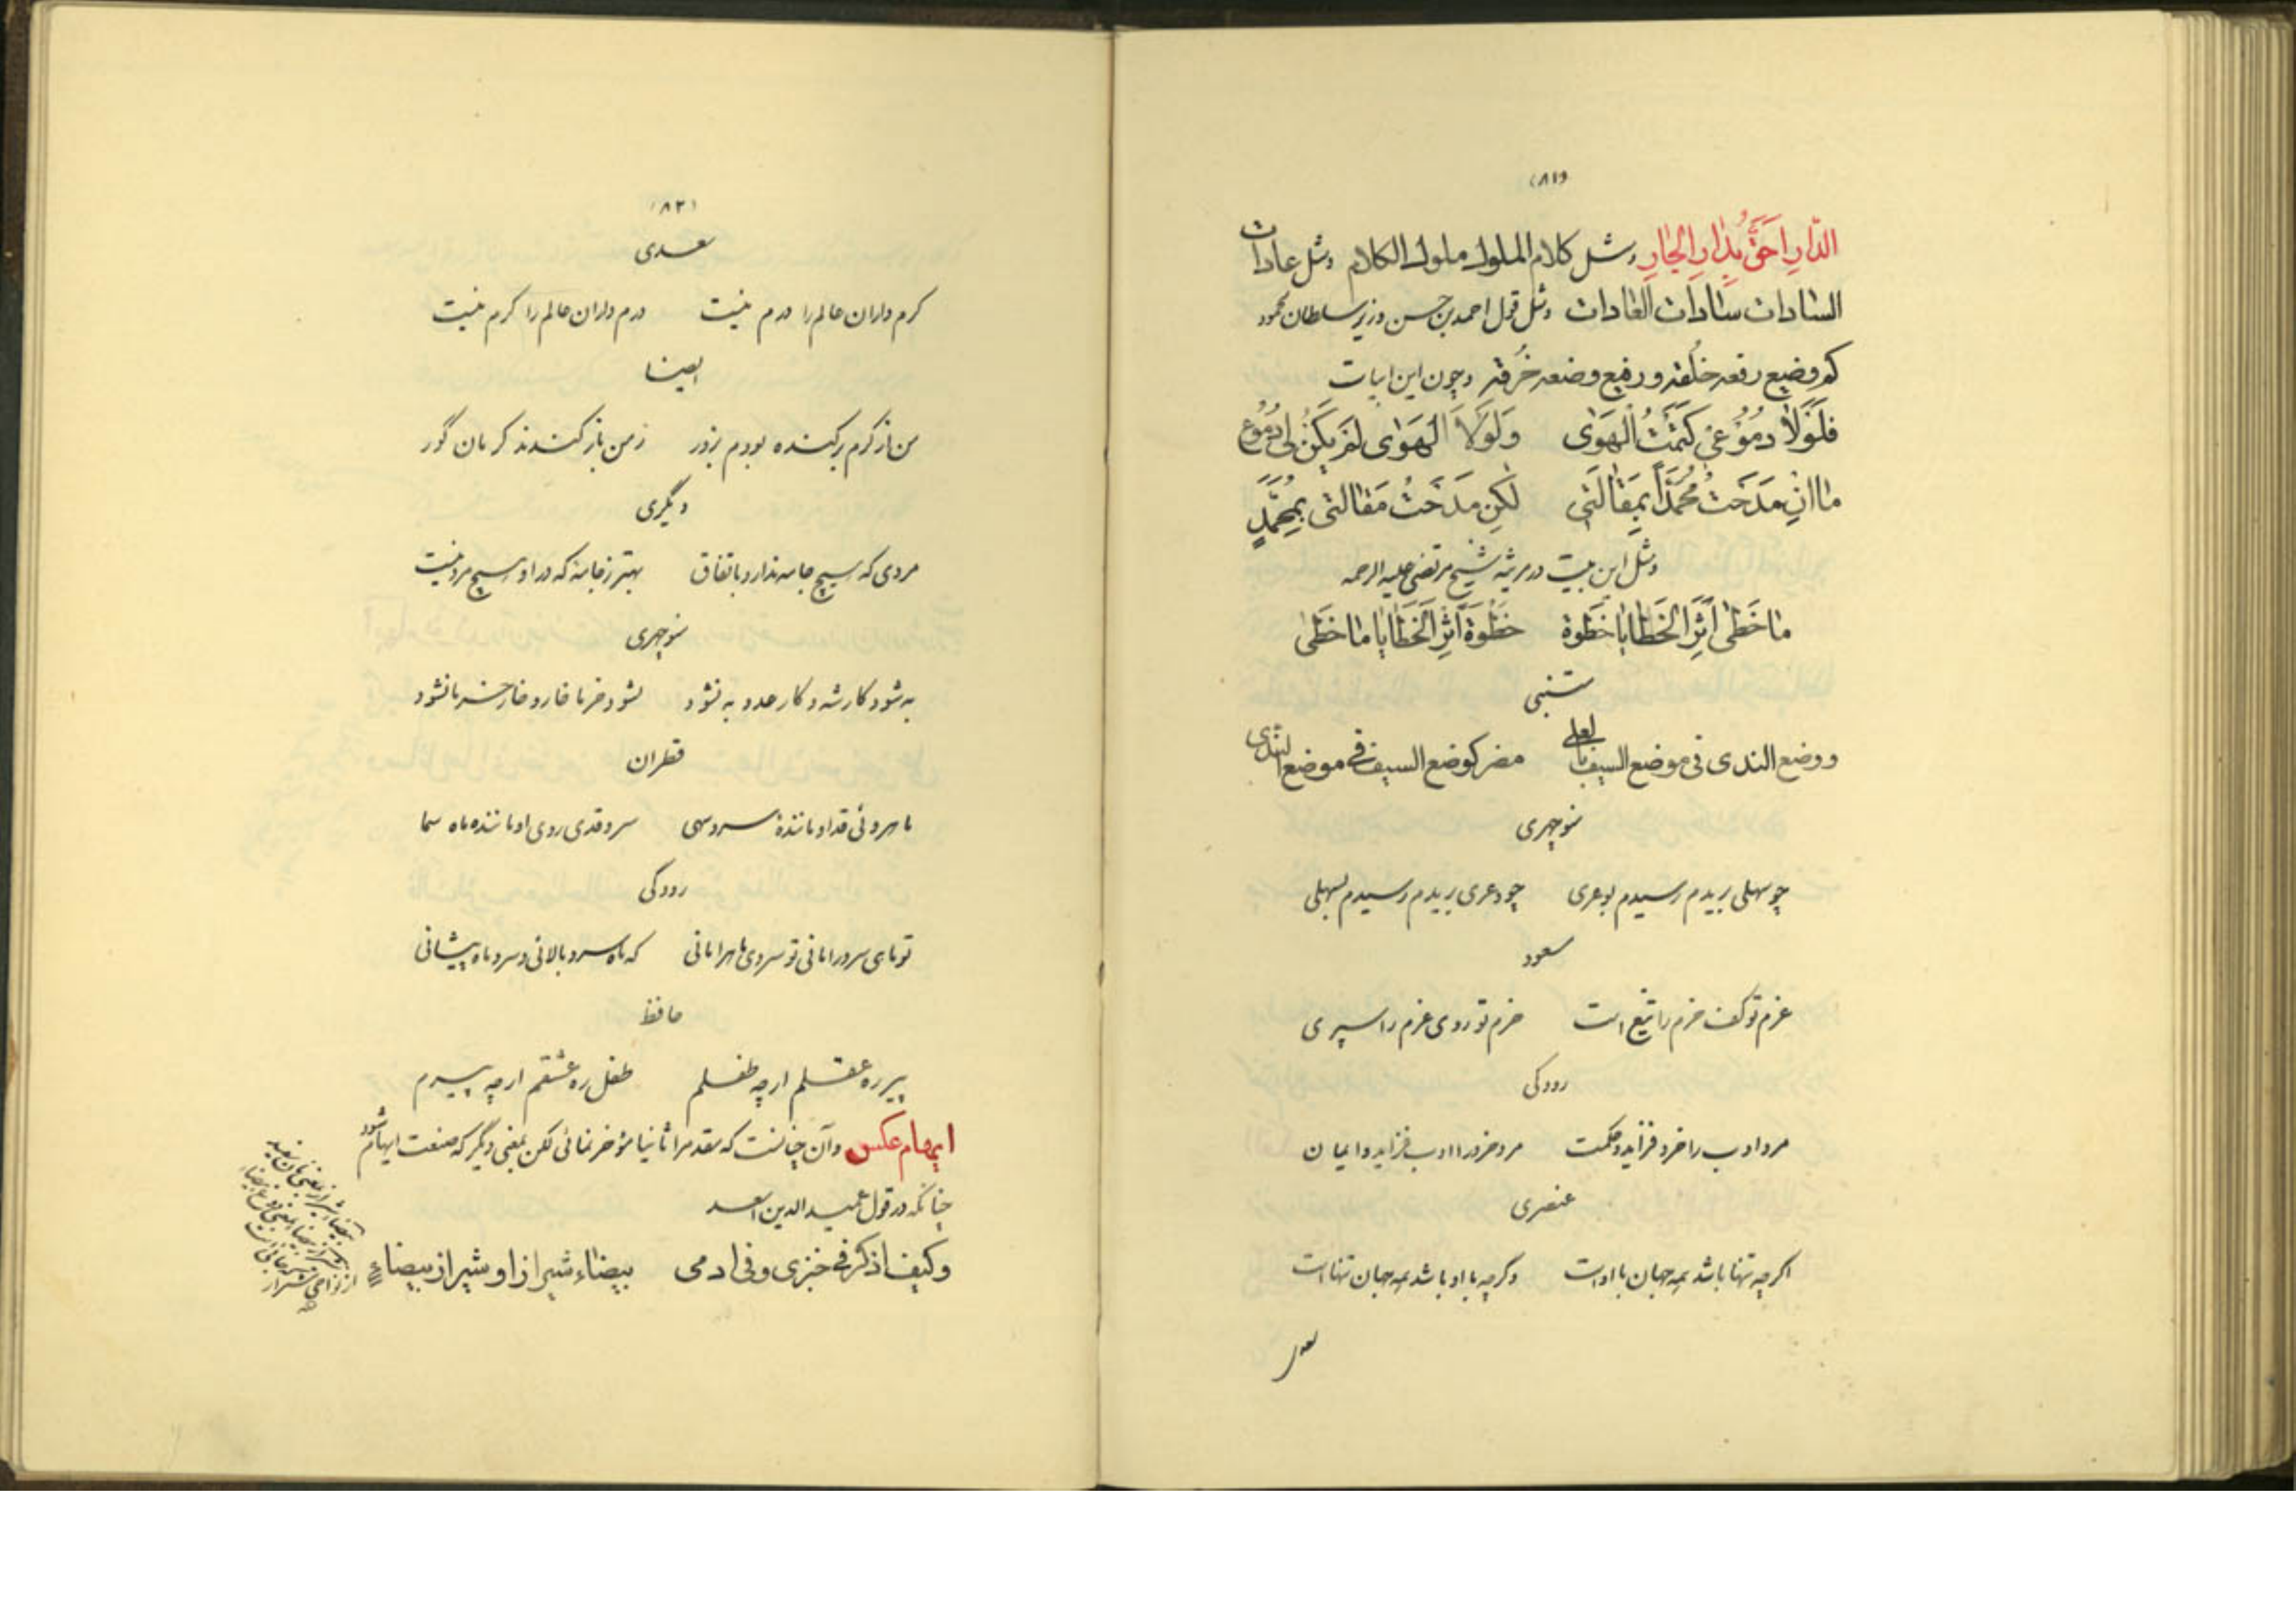 (۸۱)
الدّارِ اَحَقُّ بِدٰارِ الجٰارِ ومثل کلام الملوك ملوك الکلام ومثل عادات
السّادات سٰادات العٰادات ومثل قول احمد بن حسن وزیر سلطان محمود
کم وضیع رفعه خلقه و رفیع وضعه خرقه وچون این ابیات
فَلَوْلاٰ دُمُوعی کَتَمْتُ الْهَوٰی وَلَوْلاَ الْهَوٰی لَمْ یَکُنْ لی دُمُوعُ
مٰا اِنْ مَدَحْتُ مُحَمَّداً بِمَقٰالَتی لٰکِنْ مَدَحْتُ مَقٰالَتی بِمُحَمَّدٍ
ومثل این بیت در مرثیه شیخ مرتضی علیه الرحمه
مٰا خَطٰی اَثَرَ الْخَطٰایٰا خَطْوَةً خَطْوَةً اَثَرَ الْخَطٰایٰا مٰا خَطٰی
متنبی
ووضع الندی فی موضع السیف بالعلی مضر کوضع السیف فی موضع الندی
منوچهری
چو سهلی بریدم رسیدم بوعری چو وعری بریدم رسیدم بسهلی
مسعود
عزم تو کف حزم را تیغ است حزم تو روی عزم را سپری
رودکی
مرد ادب را خرد فزاید و حکمت مرد خرد را ادب فزاید و ایمان
عنصری
اگرچه تنها باشد همه جهان با اوست وگرچه با او باشد همه جهان تنهاست
(۸۲)
سعدی
کرم داران عالم را درم نیست درم داران عالم را کرم نیست
ایضا
من از کرم برکنده بودم بزور ز من باز کندند کرمان گور
دیگری
مردی که هیچ جامه ندارد باتفاق بهتر ز جامه که در او هیچ مرد نیست
منوچهری
به شود کار شه و کار عدو به نشود نشود خرما خار و خار خرما نشود
قطران
ماهروئی قد او مانندهٔ سرو سهی سروقدی روی او ماننده ماه سما
رودکی
تو ماهی سرو را مانی تو سروی ماه را مانی که ماه سرو بالائی و سرو ماه پیشانی
حافظ
پیر ره عقلم ارچه طفلم طفل ره عشقم ارچه پیرم
ایهام عکس وآن چنانست که مقدم را ثانیا مؤخر نمائی لکن بمعنی دیگر که صنعت ایهام شود
چنانکه در قول عمید الدین اسعد
وکیف اذکر فی خبزی وفی ادمی بیضاء شیراز او شیراز بیضاء
از نواحی شیراز